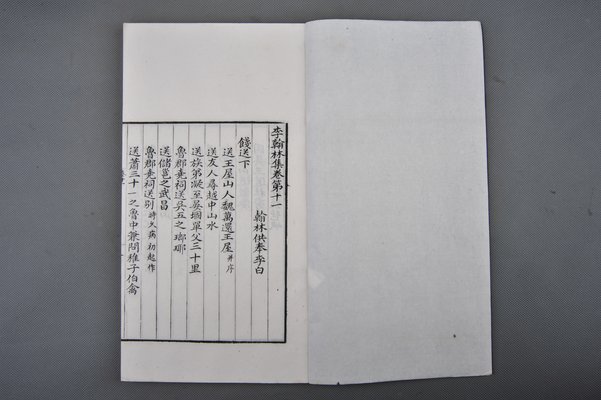 李翰林集卷第十一
翰林供奉李白
餞送下
送王屋山人魏萬還王屋并序
送友人尋越中山水
送族弟凝至晏堌單父三十里
魯郡堯祠送吳五之瑯琊
送儲邕之武昌
魯郡堯祠送別時久病初起作
送蕭三十一之魯中兼問稚子伯禽